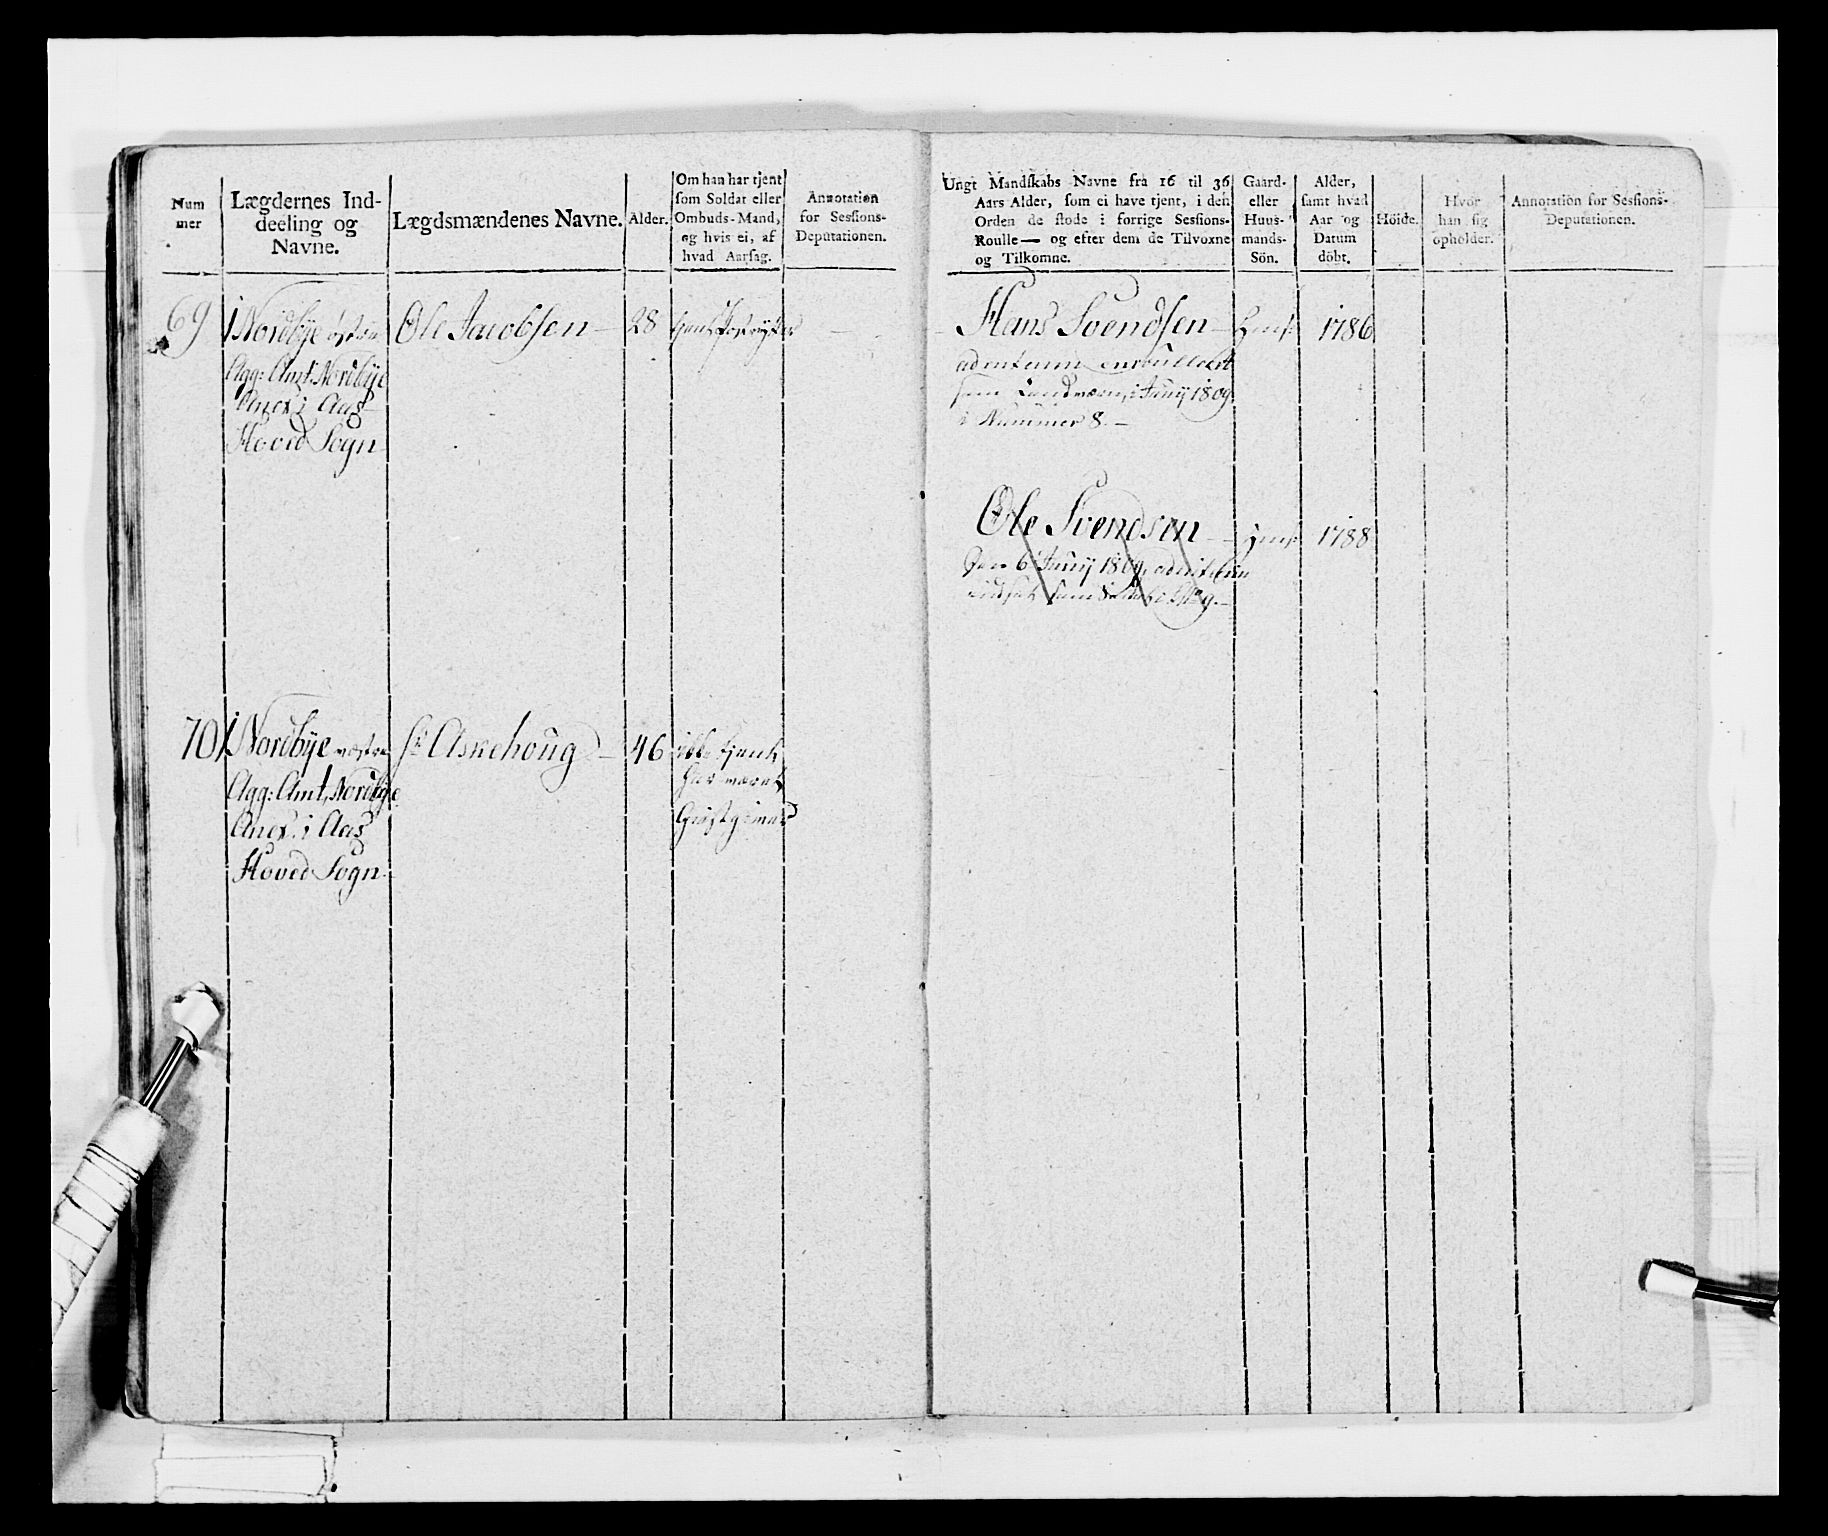 Num
mer
Lægdernes Ind-
deeling og
Navne.
Lægdsmændenes Navne.
Alder.
Om han har tjent
som Soldat eller
Ombuds-Mand,
og hvis ei, af
hvad Aarsag.
Annotation
for Sessions-
Deputationen.
69
1 Nordbye østre
Agg: Amt, Nordbye
Anex i Aas
Hoved Sogn
Ole Jacobsen
28
70
1 Nordbye vestre
Agg: Amt, Nordbye
Anex. i Aas
Hoved Sogn
Sr Askehoug
46
ikke tjent
har været
Ungt Mandskabs Navne fra 16 til 36
Aars Alder, som ei have tjent, i den
Orden de stode i forrige Sessions-
Roulle— og efter dem de Tilvoxne
og Tilkomne.
Gaard-
eller
Huus-
mands-
Sön.
Alder,
samt hvad
Aar og
Datum
döbt.
Höide.
Hvor
han sig
opholder.
Annotation for Sessions-
Deputationen.
Hans Svendsen
1786
ad interim enroulleert
som Landværn, i Junij 1809
i Nummer 8.
Ole Svendsen
1788
den 6 Junij 1809, ad interim
indsat som Soldat i No 9.